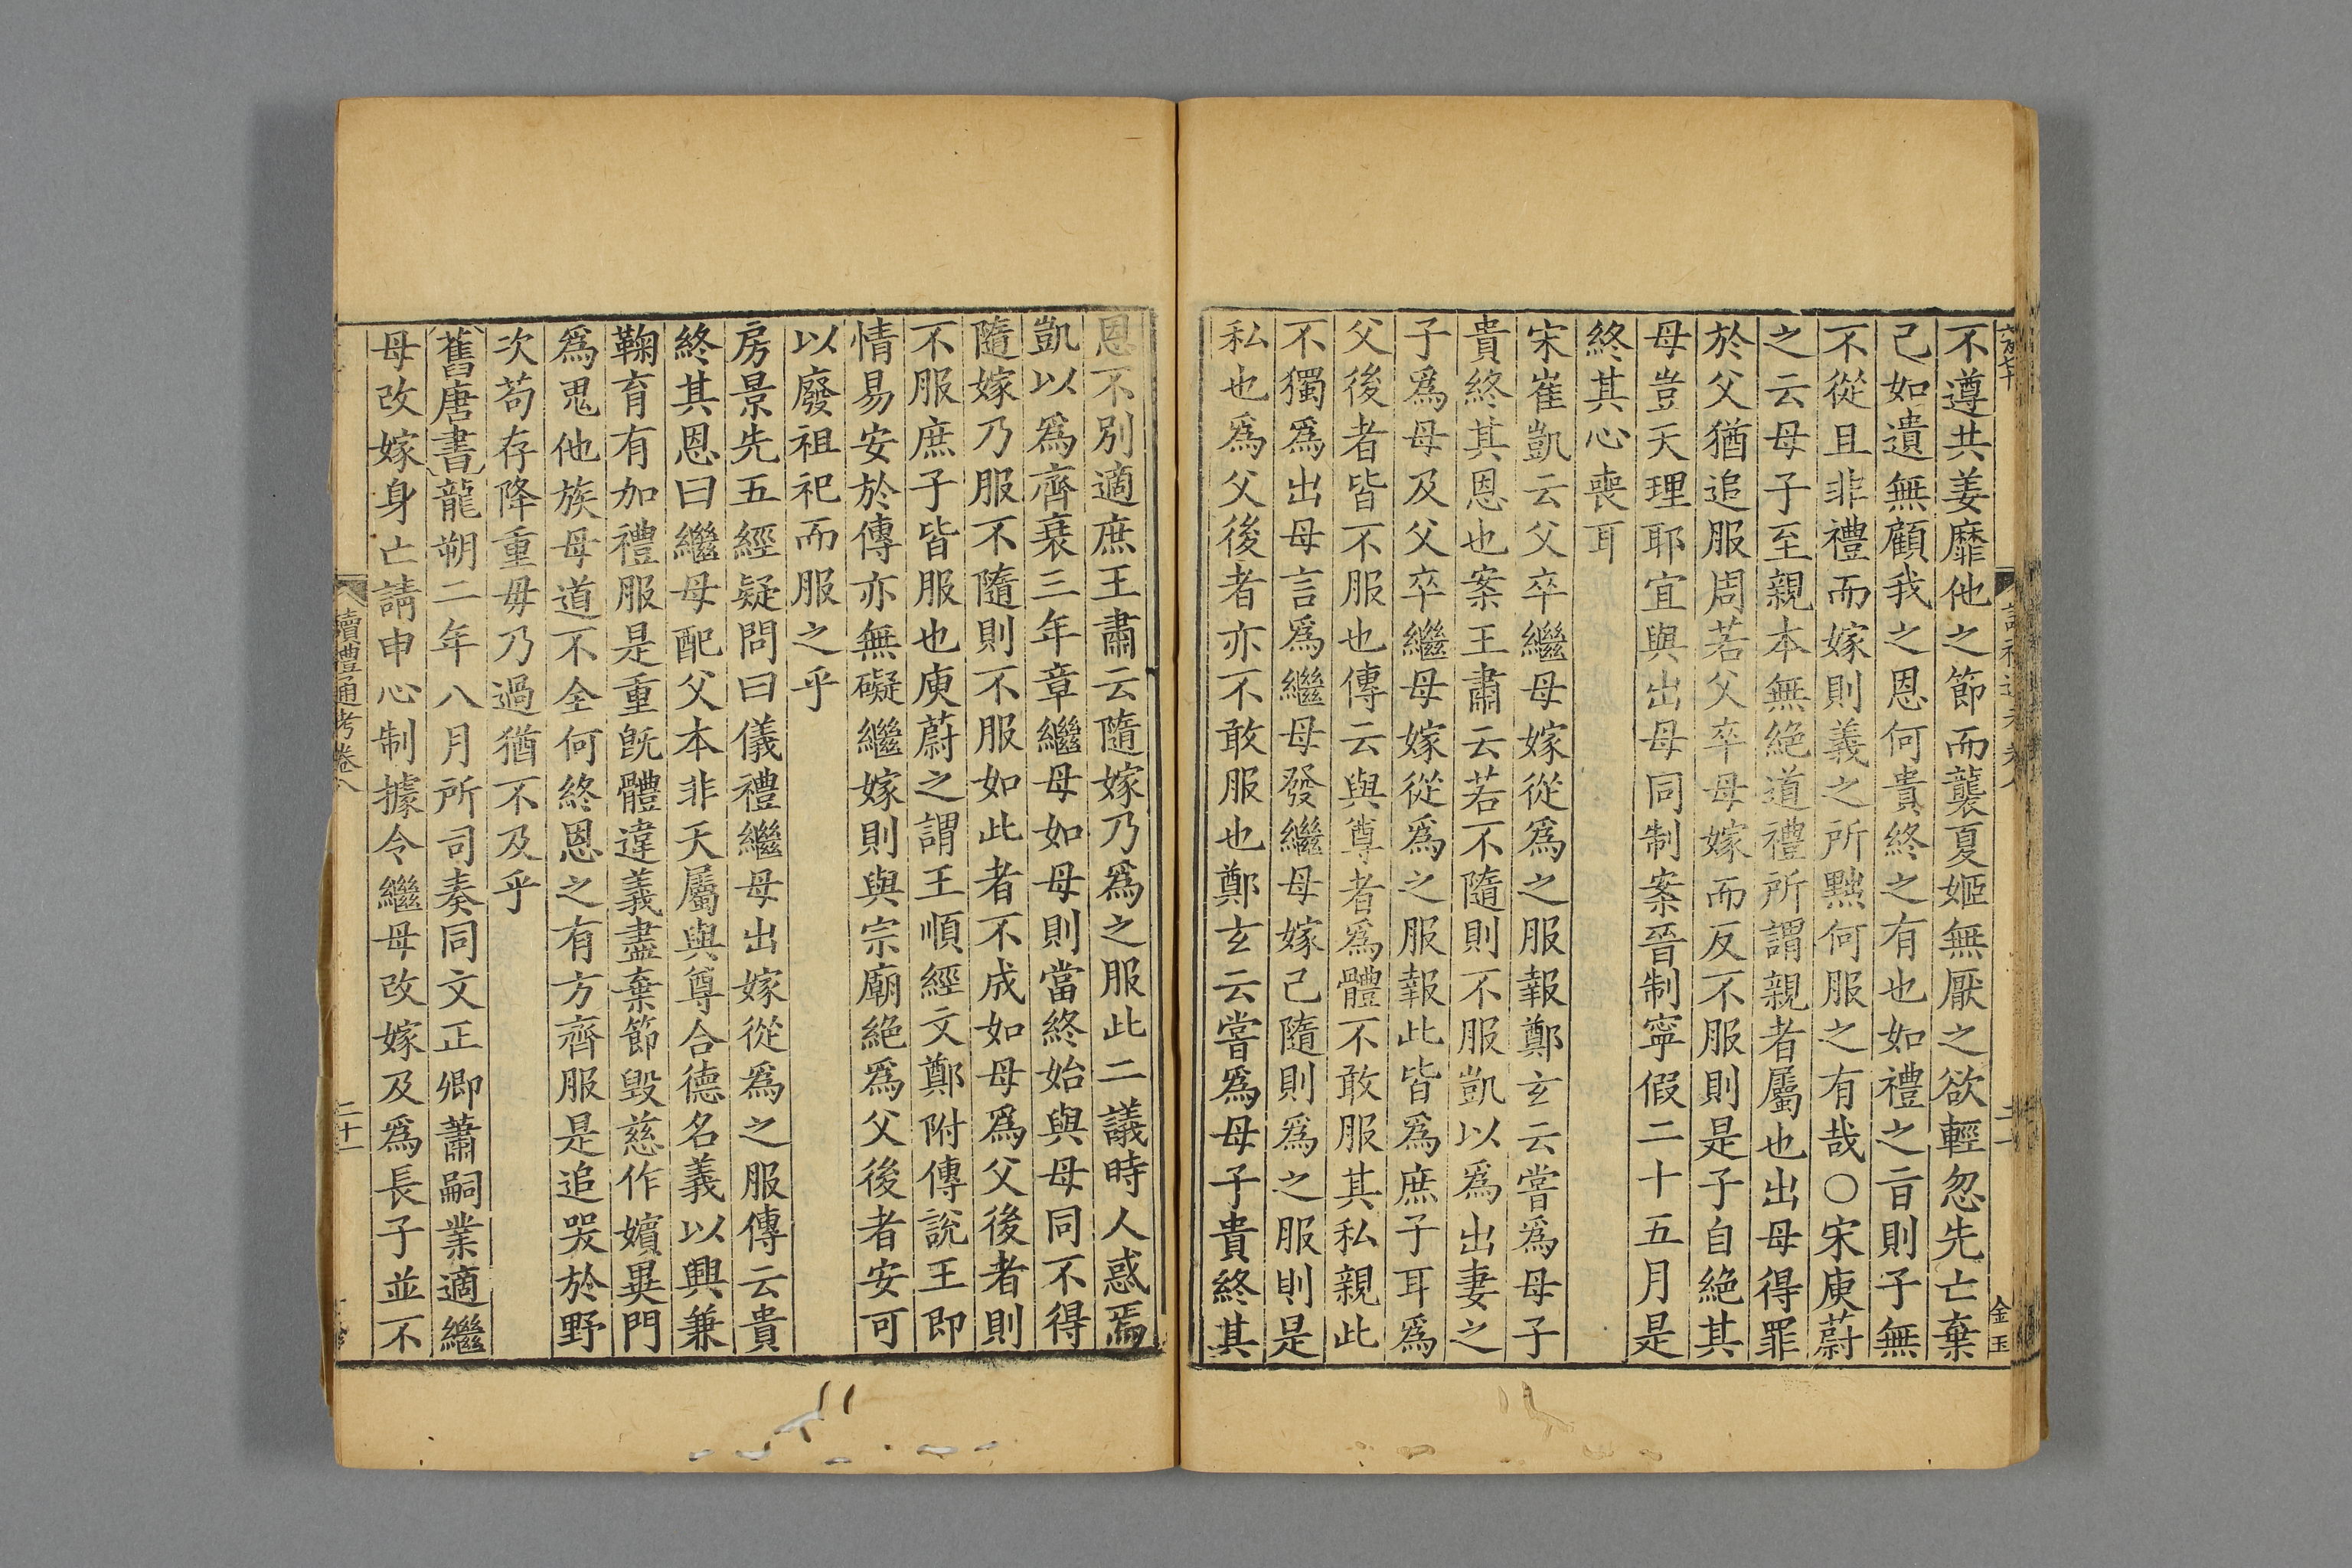 不遵共姜靡他之節而襲夏姬無厭之欲輕忽先亡棄
己如遺無顧我之恩何貴終之有也如禮之旨則子無
不從且非禮而嫁則義之所黜何服之有哉○宋庾蔚
之云母子至親本無絕道禮所謂親者屬也出母得罪
於父猶追服周若父卒母嫁而反不服則是子自絕其
母豈天理耶宜與出母同制案晉制寧假二十五月是
終其心喪耳
宋崔凱云父卒繼母嫁從爲之服報鄭玄云嘗爲母子
貴終其恩也案王肅云若不隨則不服凱以爲出妻之
子爲母及父卒繼母嫁從爲之服報此皆爲庶子耳爲
父後者皆不服也傳云與尊者爲體不敢服其私親此
不獨爲出母言爲繼母發繼母嫁己隨則爲之服則是
私也爲父後者亦不敢服也鄭玄云嘗爲母子貴終其
恩不別適庶王肅云隨嫁乃爲之服此二議時人惑焉
凱以爲齊衰三年章繼母如母則當終始與母同不得
隨嫁乃服不隨則不服如此者不成如母爲父後者則
不服庶子皆服也庾蔚之謂王順經文鄭附傳說王即
情易安於傳亦無礙繼嫁則與宗廟絕爲父後者安可
以廢祖祀而服之乎
房景先五經疑問曰儀禮繼母出嫁從爲之服傳云貴
終其恩曰繼母配父本非天屬與尊合德名義以興兼
鞠育有加禮服是重旣體違義盡棄節毀慈作嬪異門
爲鬼他族母道不全何終恩之有方齊服是追哭於野
次苟存降重毋乃過猶不及乎
舊唐書龍朔二年八月所司奏同文正卿蕭嗣業適繼
母改嫁身亡請申心制據令繼母改嫁及爲長子並不
讀禮通考卷八
二十一
金玉